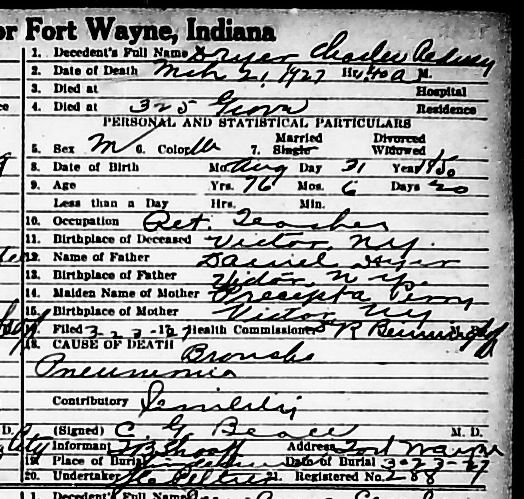 or Fort Wayne, Indiana
1. Decedent's Full Name Dryer Charles
2. Date of Death Mch 21, 1927 Hr. 4:40 A M.
3. Died at Hospital
4. Died at 325 Residence
PERSONAL AND STATISTICAL PARTICULARS
5. Sex M 6. Color W 7. Married Single Divorced Widowed
8. Date of Birth Mo. Aug Day 31 Year 1850
9. Age Yrs. 76 Mos. 6 Days 20
Less than a Day Hrs. Min.
10. Occupation Ret. Teacher
11. Birthplace of Deceased Victor, N.Y.
12. Name of Father Daniel Dryer
13. Birthplace of Father Victor N.Y.
14. Maiden Name of Mother Precepta Perry
15. Birthplace of Mother Victor, N.Y.
17. Filed 3-23-1927 Health Commissioner
18. CAUSE OF DEATH Broncho
Pneumonia
Contributory Senility
D. (Signed) C G Beall M. D.
City Informant Address Fort Wayne
19. Place of Burial Date of Burial 3-23-27
20. Undertaker 21. Registered No. 288
1. Decedent's Full Name